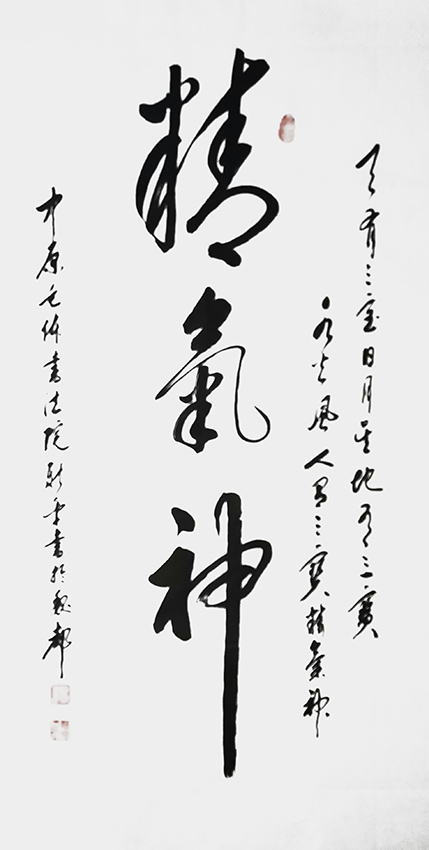 天有三宝日月星地有三寶
水火風人有三寶精氣神
精氣神
中原毛体書法院書於魏都